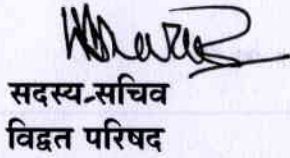 सदस्य-सचिव
विद्वत परिषद